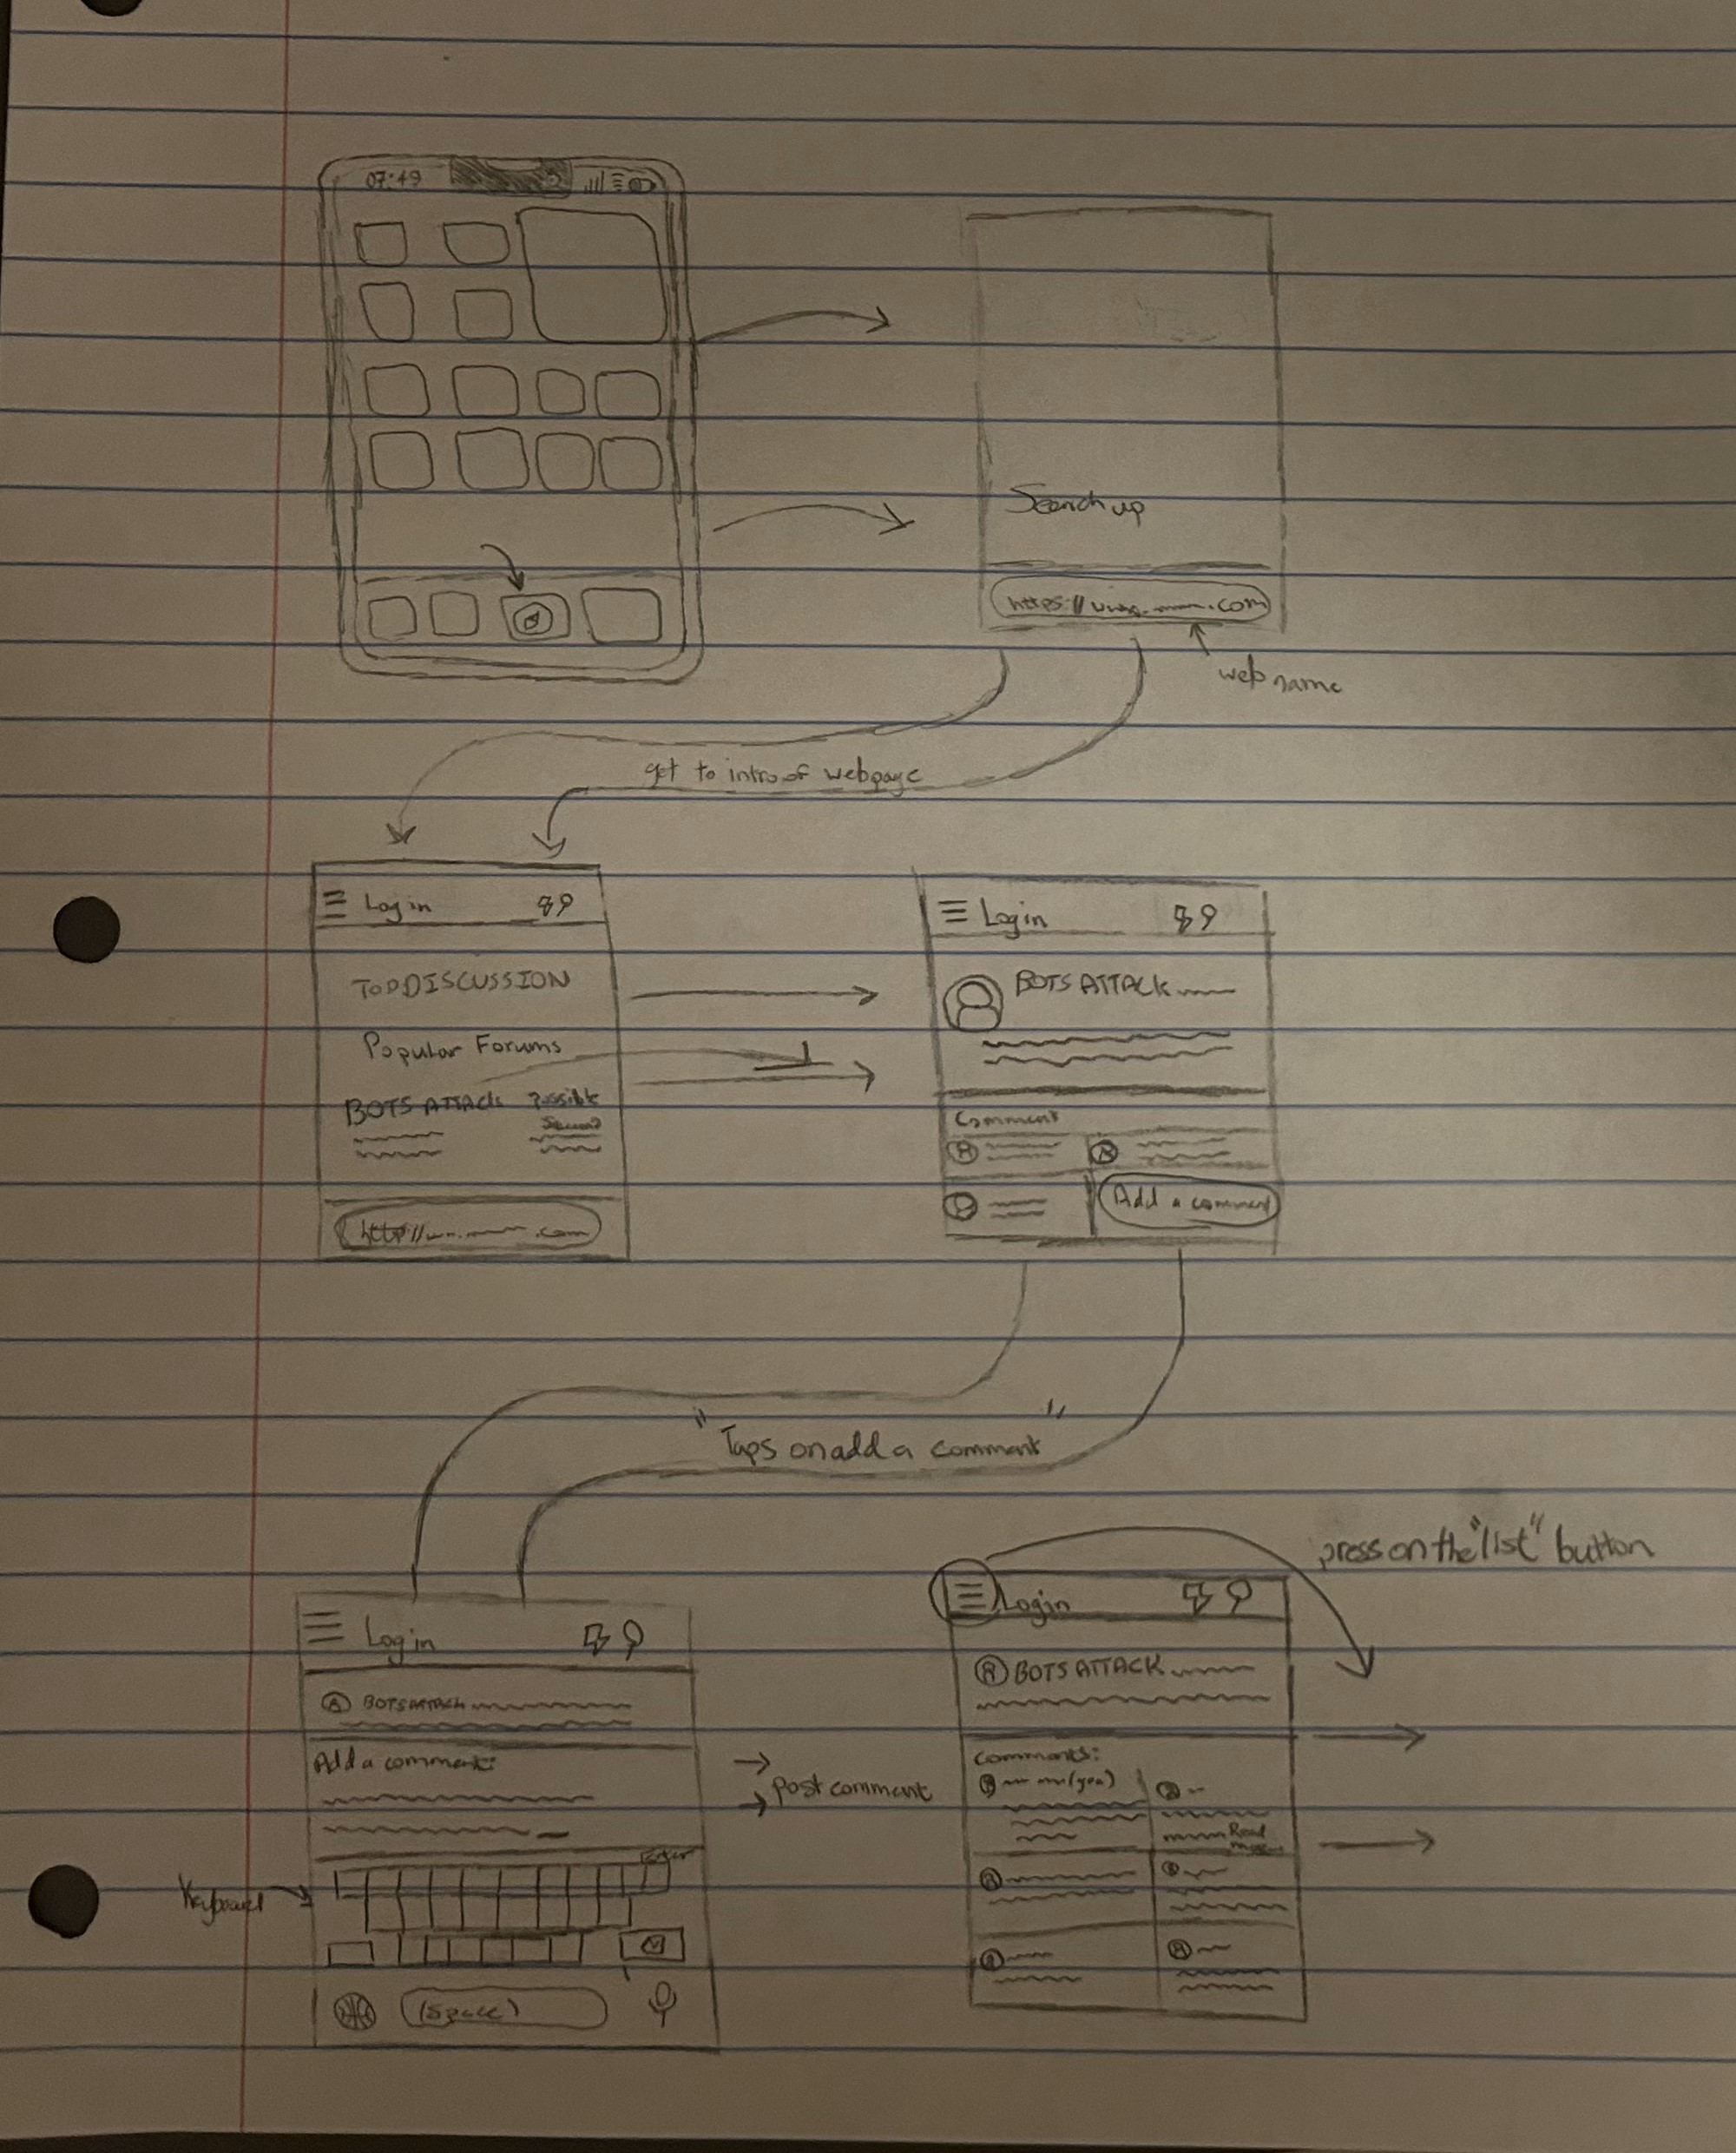 07:49
Search up
https://www. .com
web name
get to intro of webpage
Login
TOP DISCUSSION
Popular Forums
BOTS ATTACK Possible
http:// .com
Login
BOTS ATTACK
Comment
Add a comment
"Taps on add a comment"
Login
BOTS ATTACK
Add a comment:
Enter
Keyboard
(Space)
Post comment
press on the "list" button
Login
BOTS ATTACK
Comments:
(you)
Read
more